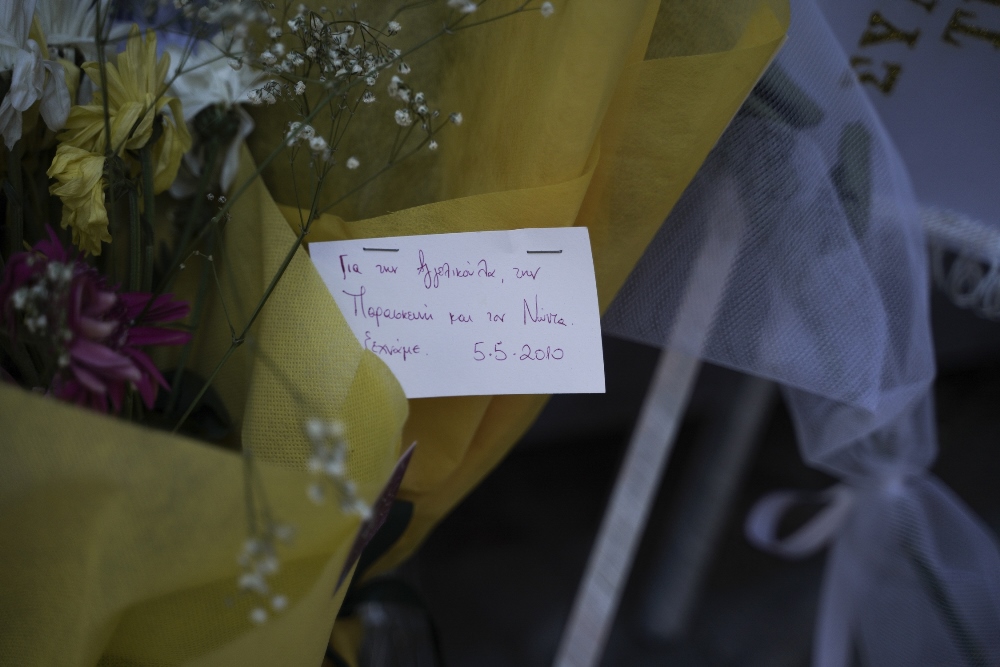 Για την Αγγελικούλα, την
Παρασκευή και τον Νώντα.
ξεχνάμε. 5.5.2010
ΣΥ
Τ